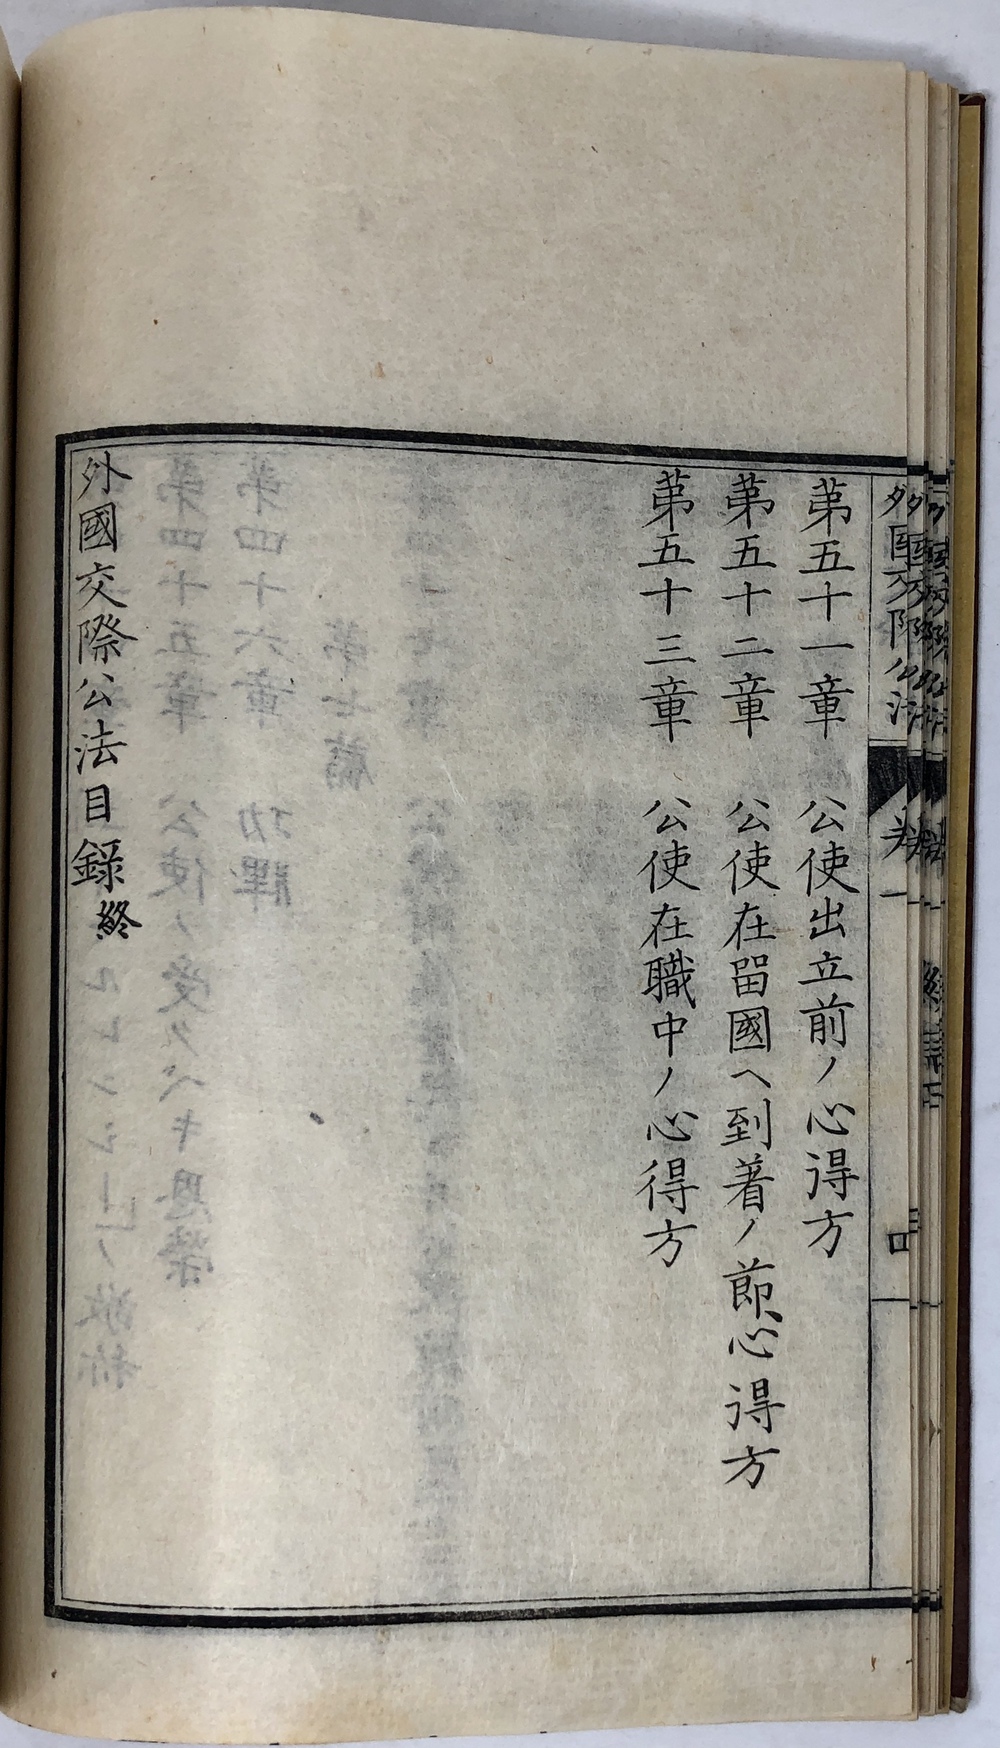 第五十一章 公使出立前ノ心得方
第五十二章 公使在留國ヘ到着ノ節心得方
第五十三章 公使在職中ノ心得方
外國交際公法目録終